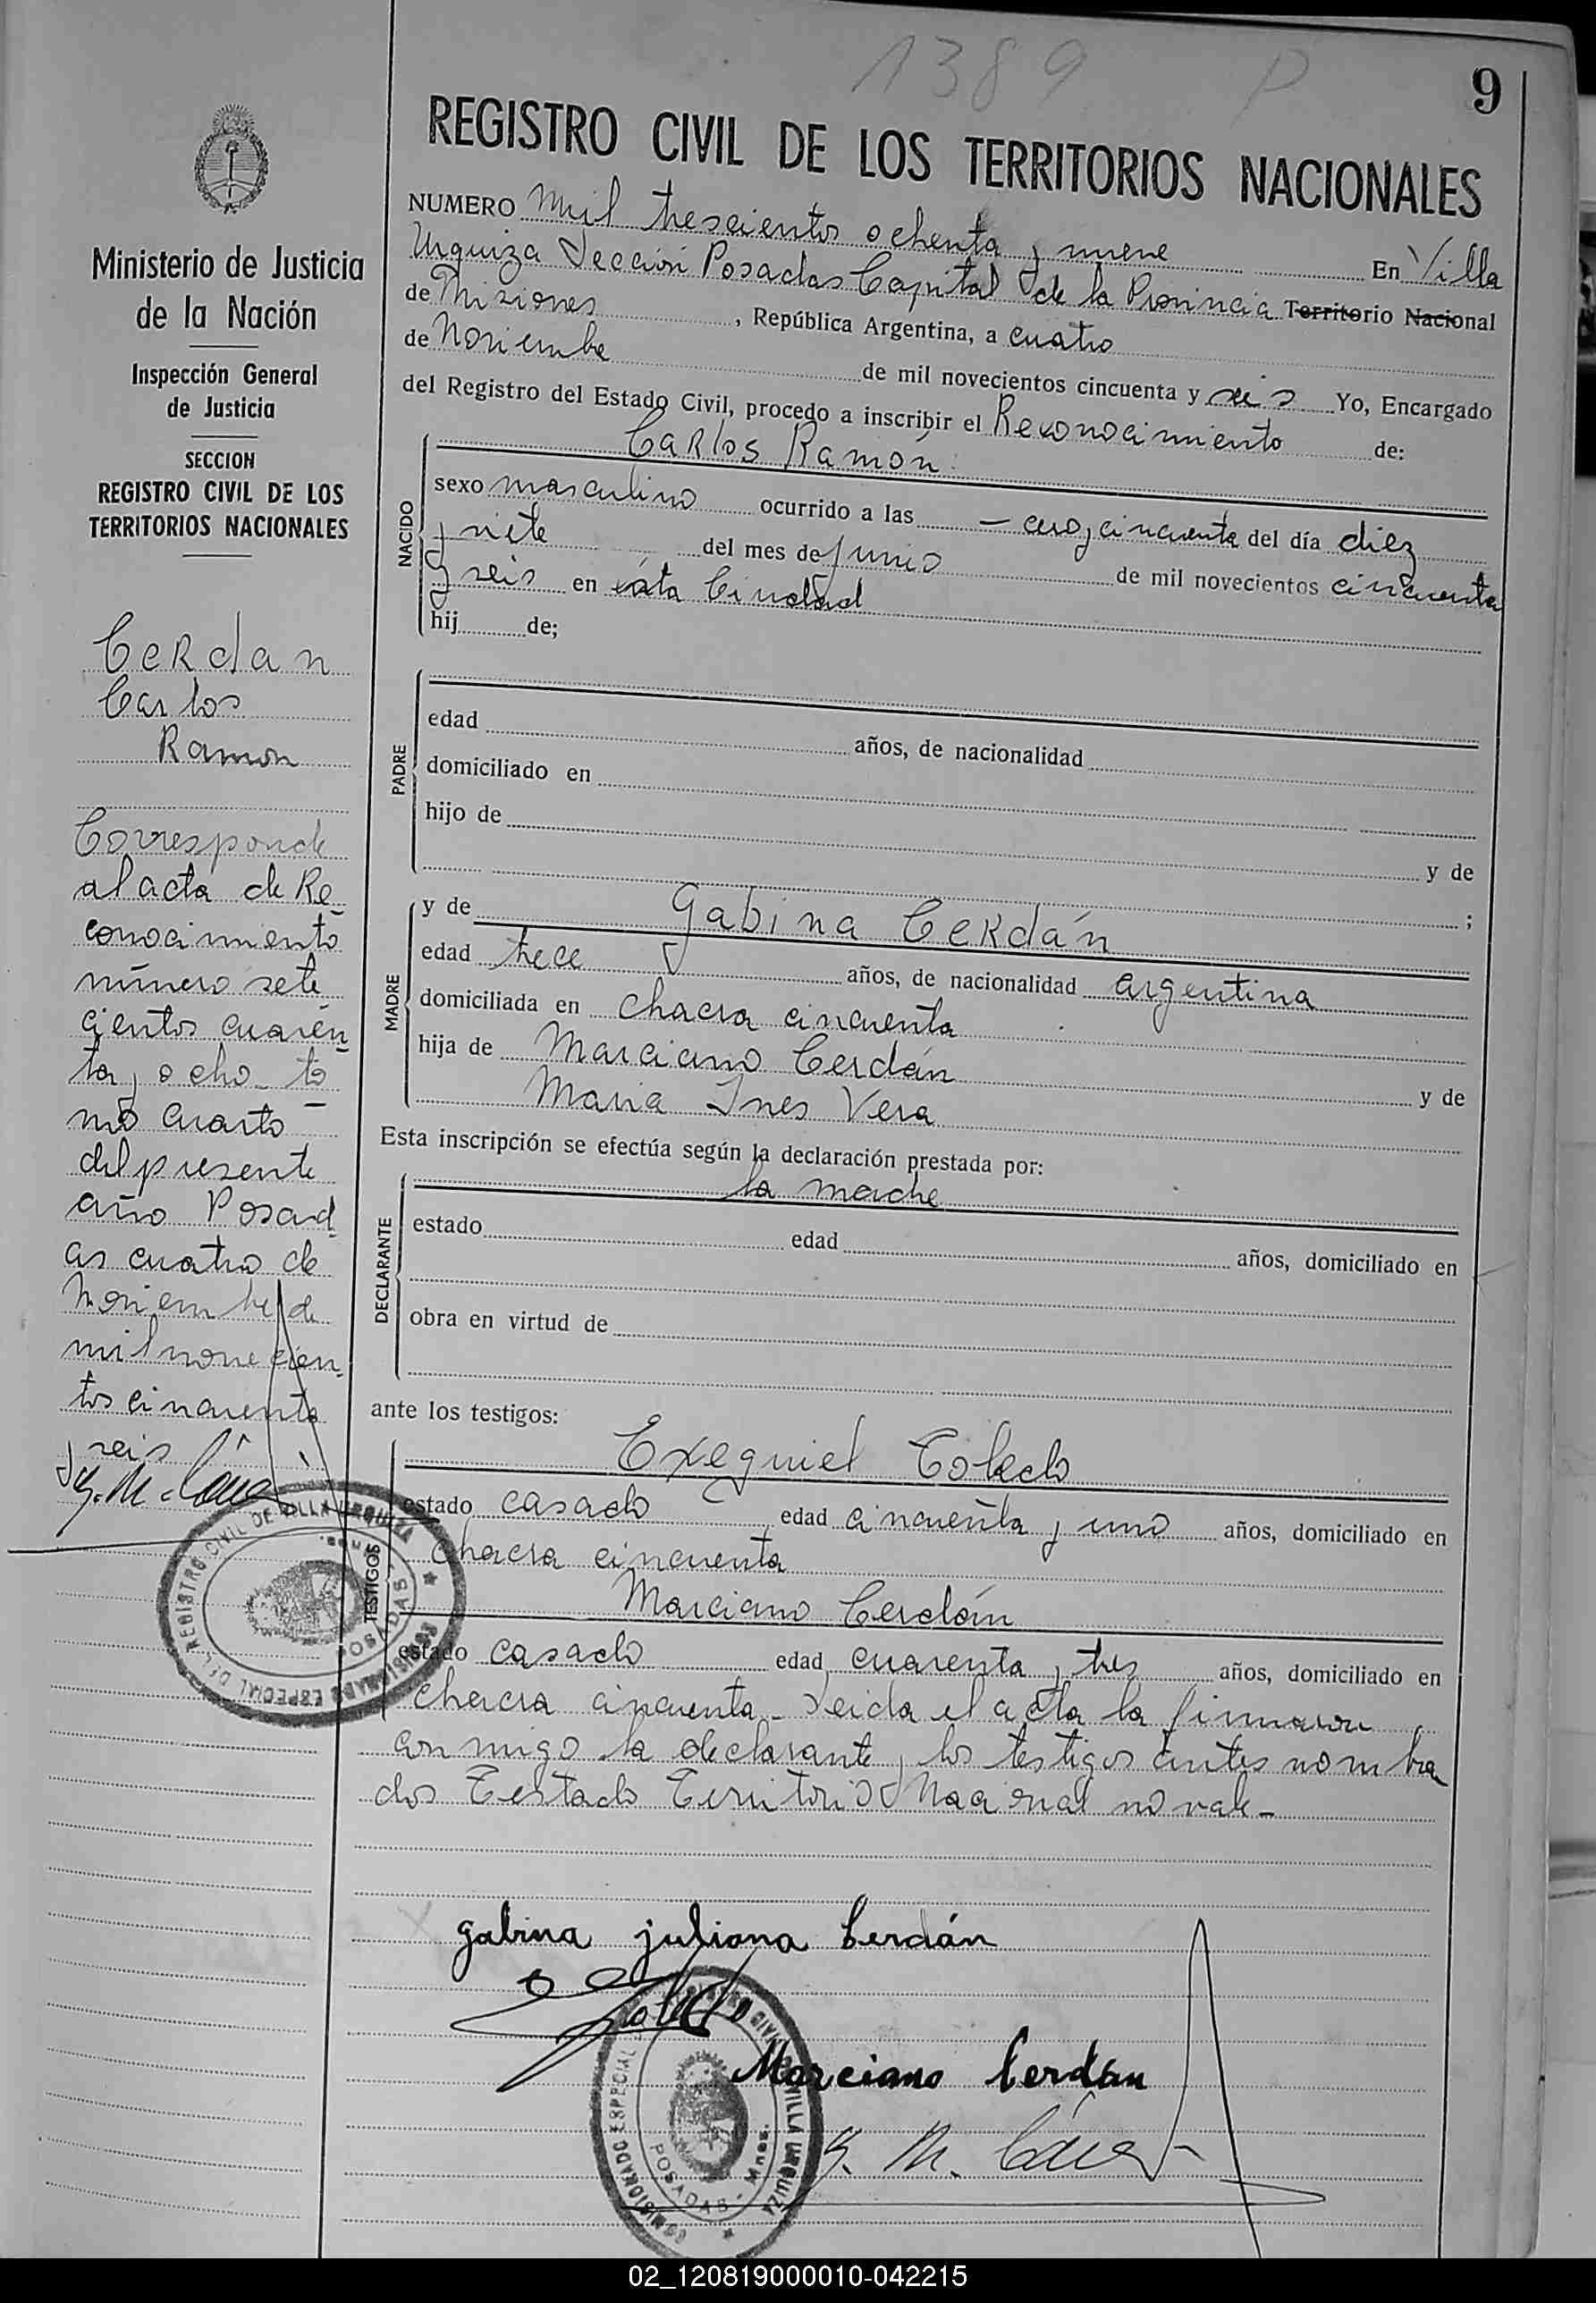 1389 P
9
REGISTRO CIVIL DE LOS TERRITORIOS NACIONALES
NUMERO Mil trescientos ochenta y nueve En Villa
Urquiza Sección Posadas Capital de la Provincia Territorio Nacional
de Misiones, República Argentina, a cuatro
de Noviembre de mil novecientos cincuenta y seis Yo, Encargado
del Registro del Estado Civil, procedo a inscribir el Reconocimiento de:
NACIDO
Carlos Ramón
sexo masculino ocurrido a las — cero y cincuenta del día diez
y siete del mes de Junio de mil novecientos cincuenta
y seis en esta Ciudad
hij de;
PADRE
edad años, de nacionalidad
domiciliado en
hijo de
y de
;
MADRE
y de Gabina Cerdán
edad trece años, de nacionalidad argentina
domiciliada en chacra cincuenta
hija de Marciano Cerdán y de
Maria Ines Vera
Esta inscripción se efectúa según la declaración prestada por:
DECLARANTE
la madre
estado edad años, domiciliado en
obra en virtud de
ante los testigos:
TESTIGOS
Exequiel Toledo
estado casado edad cincuenta y uno años, domiciliado en
chacra cincuenta
Marciano Cerdán
estado casado edad cuarenta y tres años, domiciliado en
chacra cincuenta - Leida el acta la firmaron
con migo la declarante y los testigos antes nombra
dos Testado Territorio Nacional no vale -
gabina juliana Cerdán
Toledo
Marciano Cerdán
COMISIONADO ESPECIAL DEL REGISTRO CIVIL DE VILLA URQUIZA
POSADAS - Mnes.
Ministerio de Justicia
de la Nación
Inspección General
de Justicia
SECCION
REGISTRO CIVIL DE LOS
TERRITORIOS NACIONALES
Cerdan
Carlos
Ramon
Corresponde
al acta de Re_
conocimiento
número sete
cientos cuaren_
ta y ocho_ to_
mo cuarto
del presente
año Posad_
as cuatro de
Noviembre de
mil novecien_
tos cincuenta
y seis
COMISIONADO ESPECIAL DEL REGISTRO CIVIL DE VILLA URQUIZA
POSADAS
02_120819000010-042215